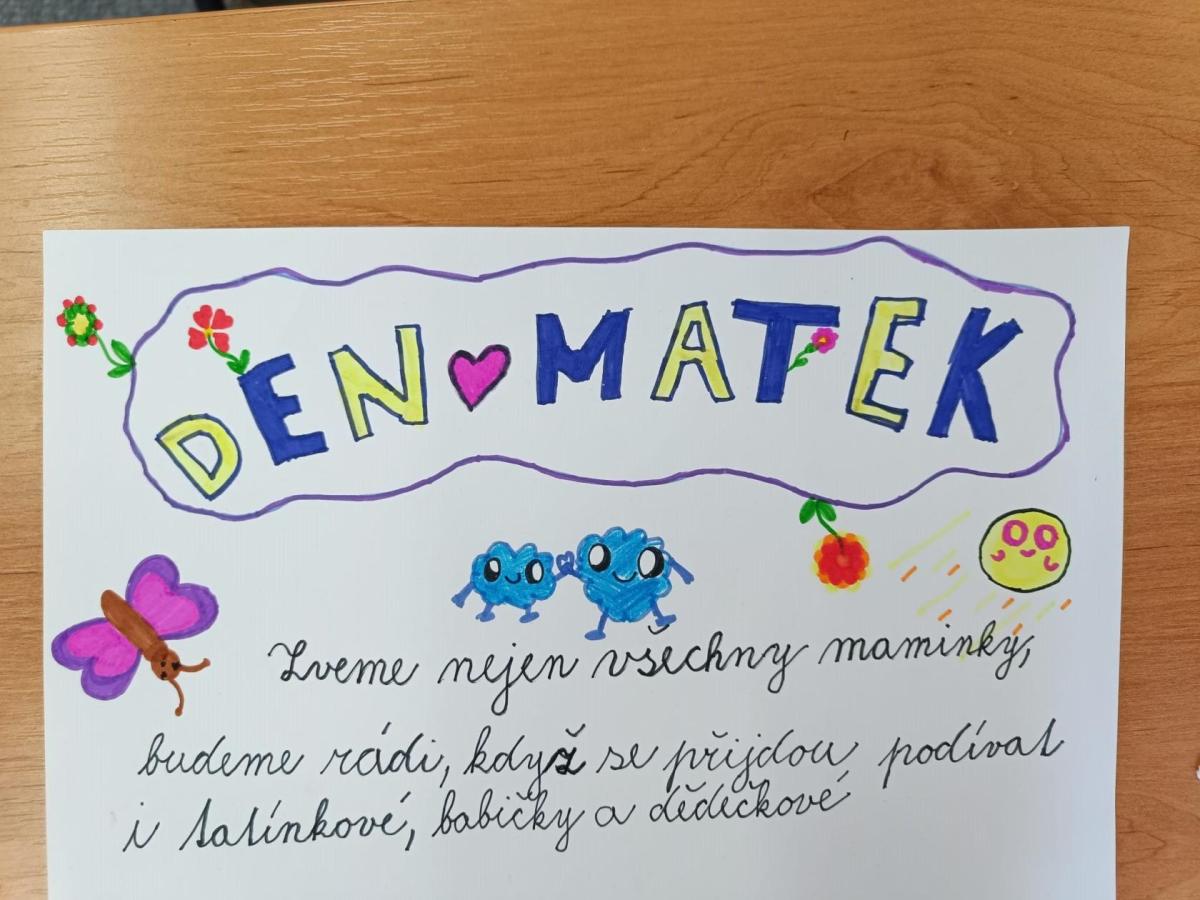 DEN MATEK
Zveme nejen všechny maminky,
budeme rádi, když se přijdou podívat
i tatínkové, babičky a dědečkové